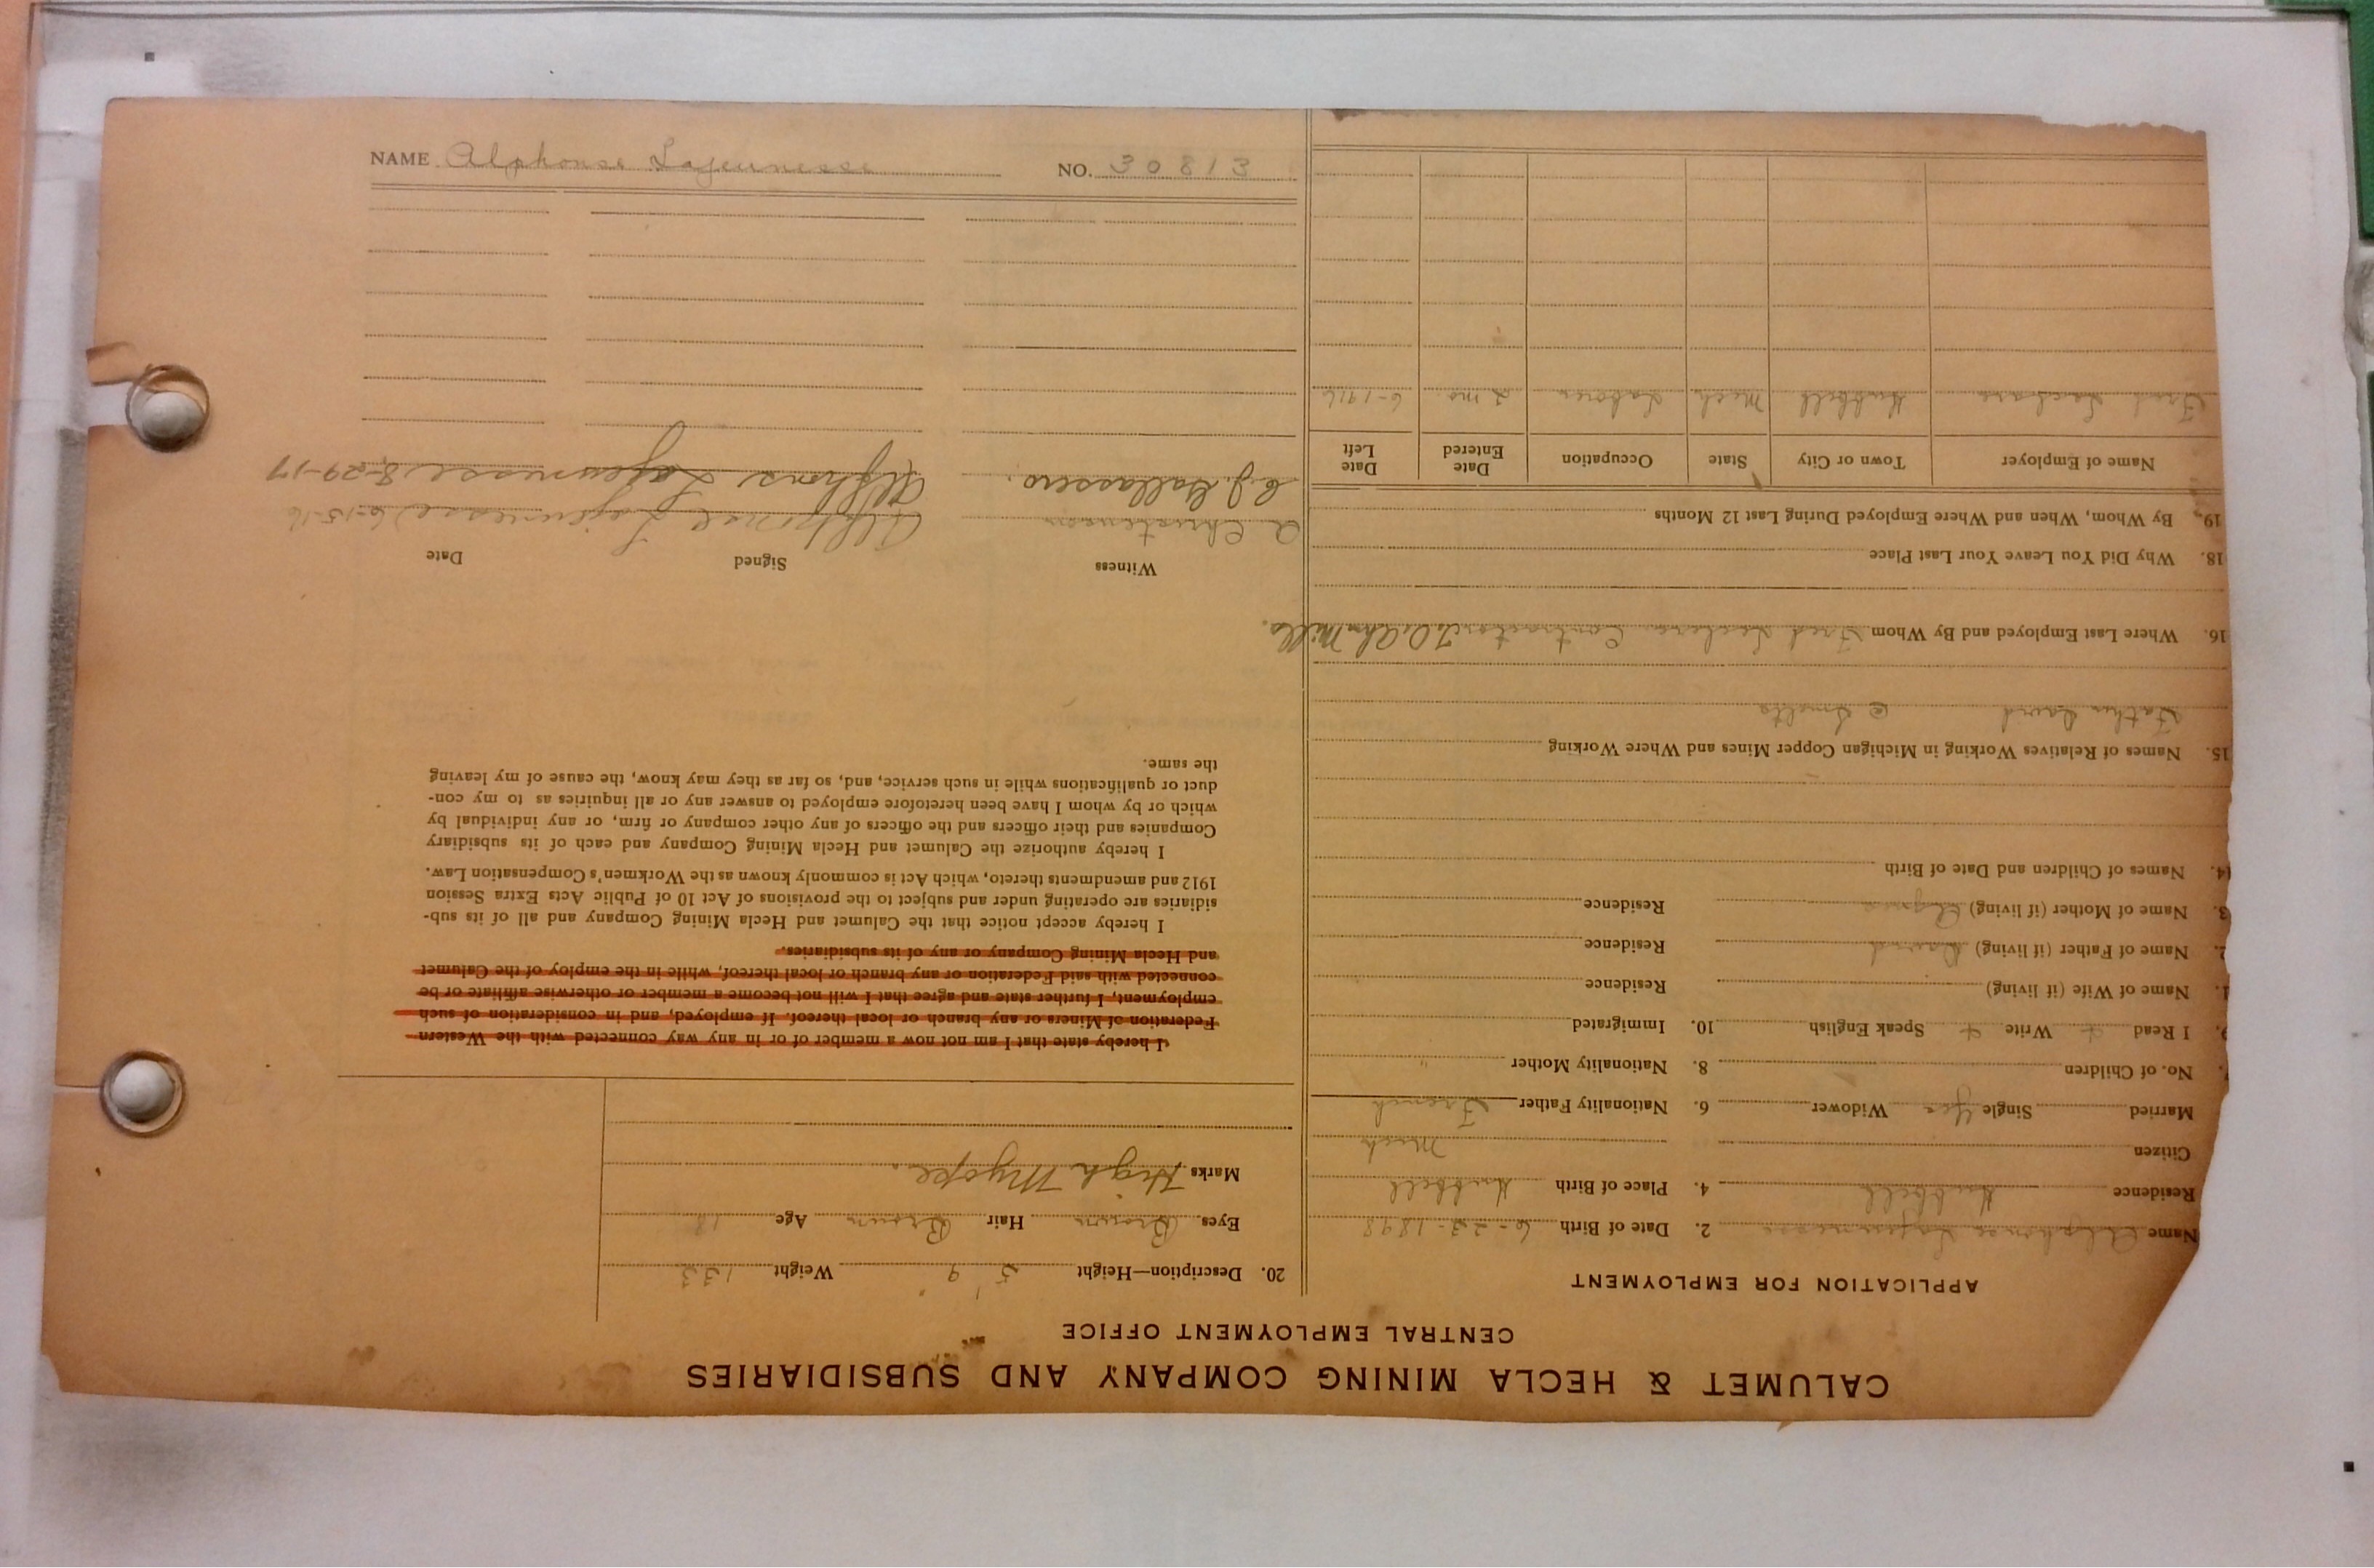 CALUMET & HECLA MINING COMPANY AND SUBSIDIARIES
CENTRAL EMPLOYMENT OFFICE
APPLICATION FOR EMPLOYMENT
Name Alphonse Lajeunesse 2. Date of Birth 6-23-1898
Residence Hubbell 4. Place of Birth Hubbell
Citizen Mich
Married Single Yes Widower 6. Nationality Father French
No. of Children 8. Nationality Mother "
9. I Read Write Speak English 10. Immigrated
1. Name of Wife (if living) Residence
2. Name of Father (if living) David Residence
3. Name of Mother (if living) Residence
14. Names of Children and Date of Birth
15. Names of Relatives Working in Michigan Copper Mines and Where Working
Father David C Smelts
16. Where Last Employed and By Whom Fred Contractor Mills.
18. Why Did You Leave Your Last Place
19. By Whom, When and Where Employed During Last 12 Months
Name of Employer Town or City State Occupation Date Entered Date Left
Fred Hubbell Mich Laborer 2 mo. 6-1916
20. Description—Height 5' 9 Weight 133
Eyes Brown Hair Brown Age 18
Marks High Myope.
I hereby state that I am not now a member of or in any way connected with the Western
Federation of Miners or any branch or local thereof. If employed, and in consideration of such
employment, I further state and agree that I will not become a member or otherwise affiliate or be
connected with said Federation or any branch or local thereof, while in the employ of the Calumet
and Hecla Mining Company or any of its subsidiaries.
I hereby accept notice that the Calumet and Hecla Mining Company and all of its sub-
sidiaries are operating under and subject to the provisions of Act 10 of Public Acts Extra Session
1912 and amendments thereto, which Act is commonly known as the Workmen's Compensation Law.
I hereby authorize the Calumet and Hecla Mining Company and each of its subsidiary
Companies and their officers and the officers of any other company or firm, or any individual by
which or by whom I have been heretofore employed to answer any or all inquiries as to my con-
duct or qualifications while in such service, and, so far as they may know, the cause of my leaving
the same.
Witness Signed Date
A Christenson Alphonse Lajeunesse 6-15-16
C.J. Gallassero. Alfhons Lajeunesse 8-29-17
NAME Alphonse Lajeunesse NO. 30813